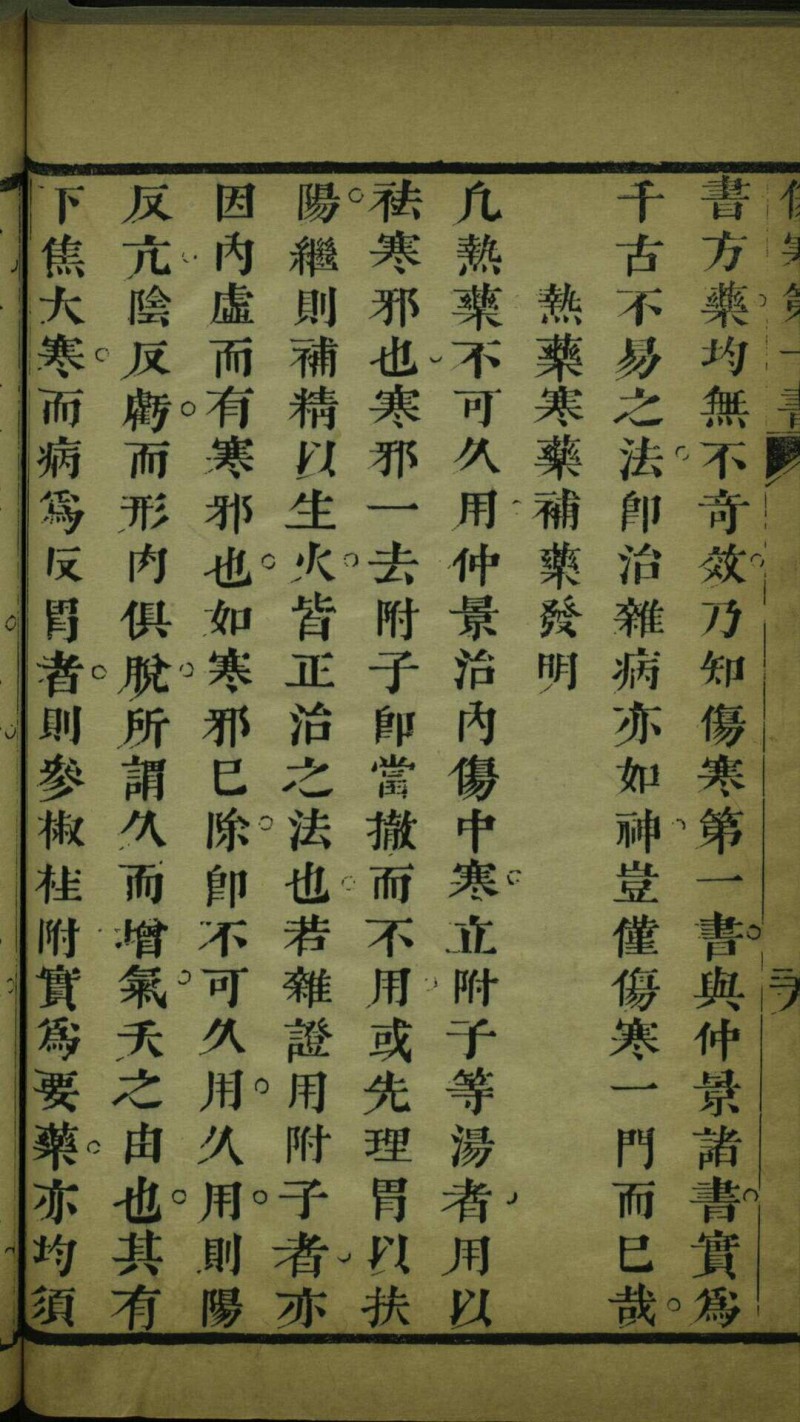 傷寒第一書
書方藥均無不奇效乃知傷寒第一書與仲景諸書實爲
千古不易之法卽治雜病亦如神豈僅傷寒一門而已哉
熱藥寒藥補藥發明
凢熱藥不可久用仲景治內傷中寒立附子等湯者用以
祛寒邪也寒邪一去附子卽當撤而不用或先理胃以扶
陽繼則補精以生火皆正治之法也若雜證用附子者亦
因內虛而有寒邪也如寒邪已除卽不可久用久用則陽
反亢陰反虧而形肉俱脫所謂久而增氣夭之由也其有
下焦大寒而病爲反胃者則參椒桂附實爲要藥亦均須